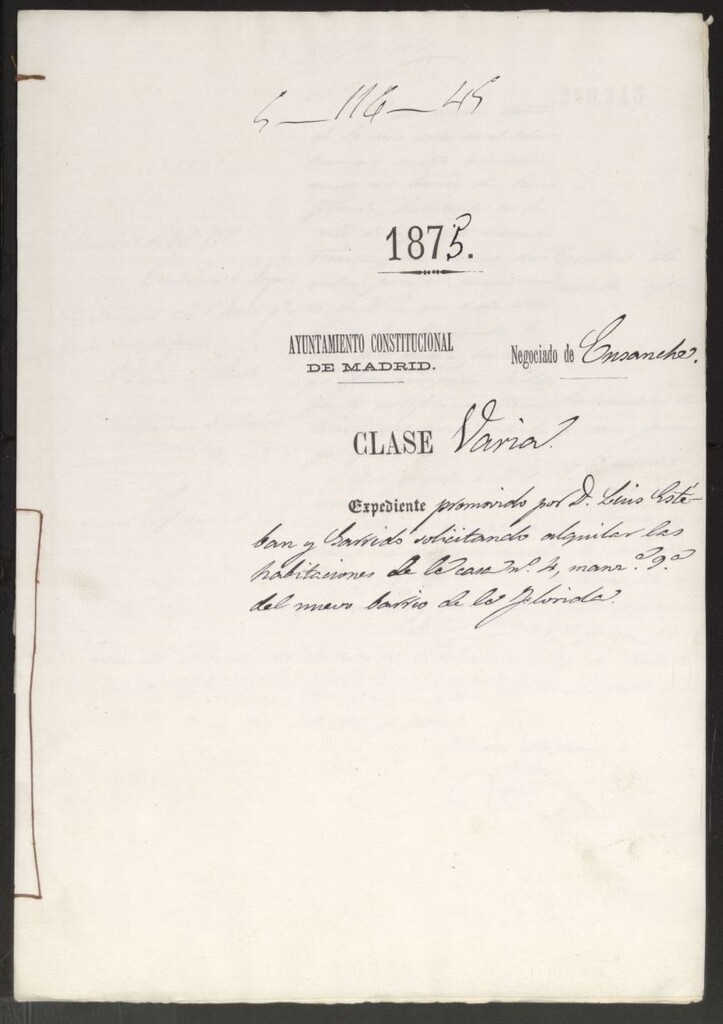 5—116—45
1875.
AYUNTAMIENTO CONSTITUCIONAL
DE MADRID.
Negociado de Ensanche.
CLASE Varia.
Expediente promovido por D. Luis Esté-
ban y Garrido solicitando alquilar las
habitaciones de la casa nº. 4, manz.ª 9.ª
del nuevo barrio de la Florida.